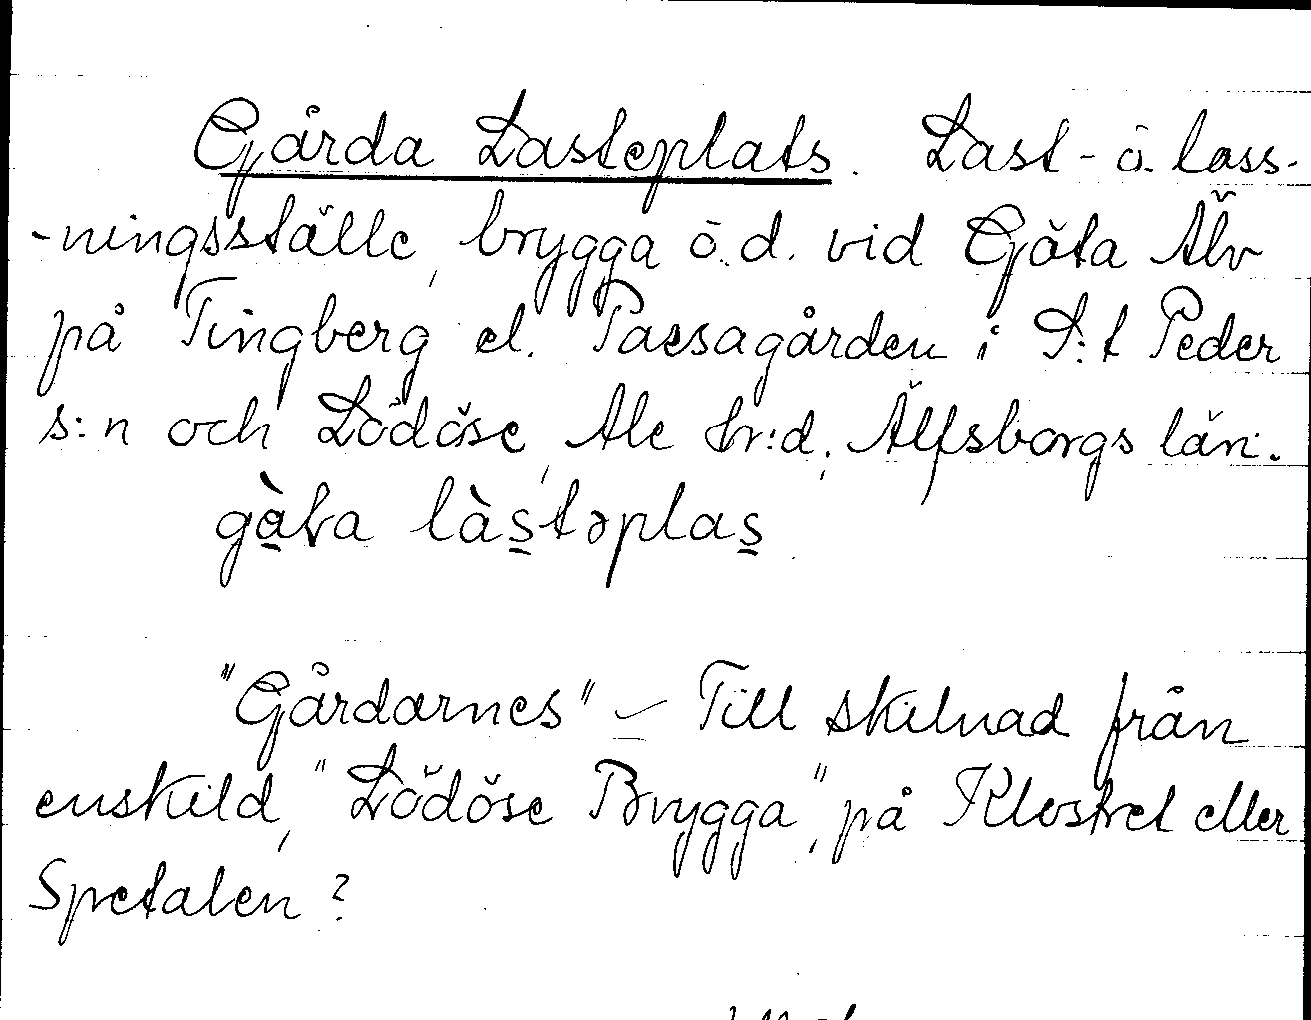 Gårda Lasteplats. Last- o. loss-
-ningsställe, brygga o.d. vid Göta Älv
på Tingberg el. Passagården i S:t Peder
s:n och Lödöse, Ale hr:d, Älfsborgs län.
gàta làstəplas
"Gårdarnes" – Till skilnad från
enskild, "Lödöse Brygga", på Klostret eller
Spetalen?